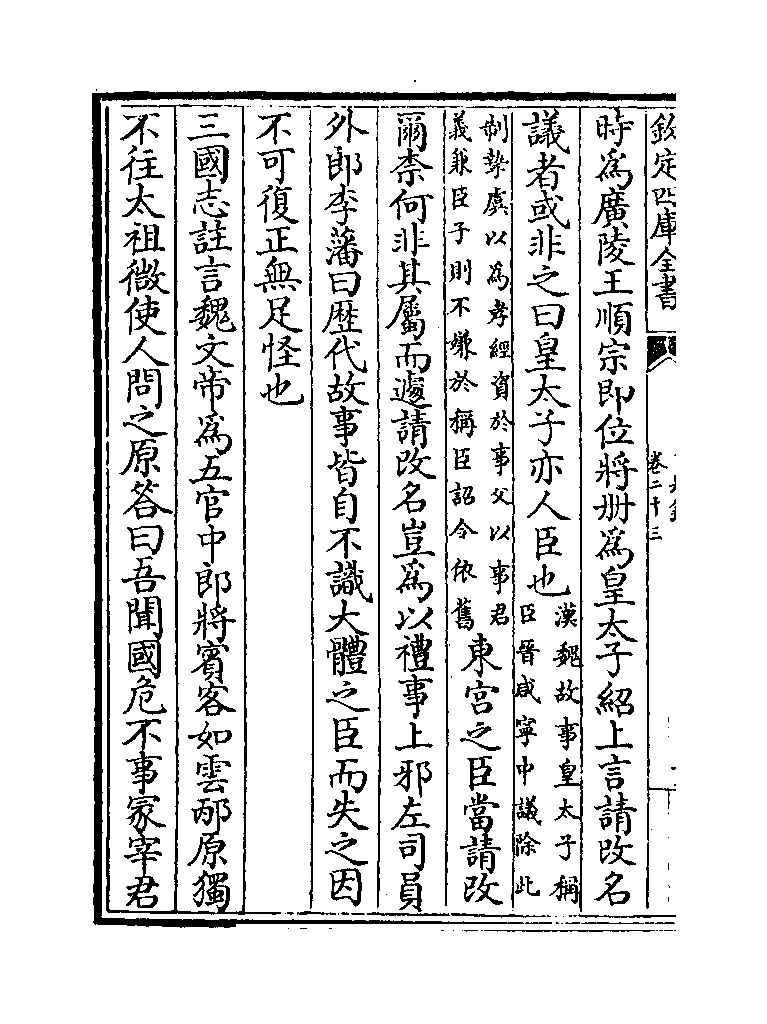 欽定四庫全書
卷二十三
時爲廣陵王順宗即位將册爲皇太子紹上言請改名
議者或非之曰皇太子亦人臣也漢魏故事皇太子稱臣晉咸寧中議除此
制摯虞以爲孝經資於事父以事君義兼臣子則不嫌於稱臣詔令依舊東宫之臣當請改
爾柰何非其屬而遽請改名豈爲以禮事上邪左司員
外郎李藩曰歴代故事皆自不識大體之臣而失之因
不可復正無足怪也
三國志註言魏文帝爲五官中郎將賓客如雲邴原獨
不往太祖微使人問之原答曰吾聞國危不事冢宰君